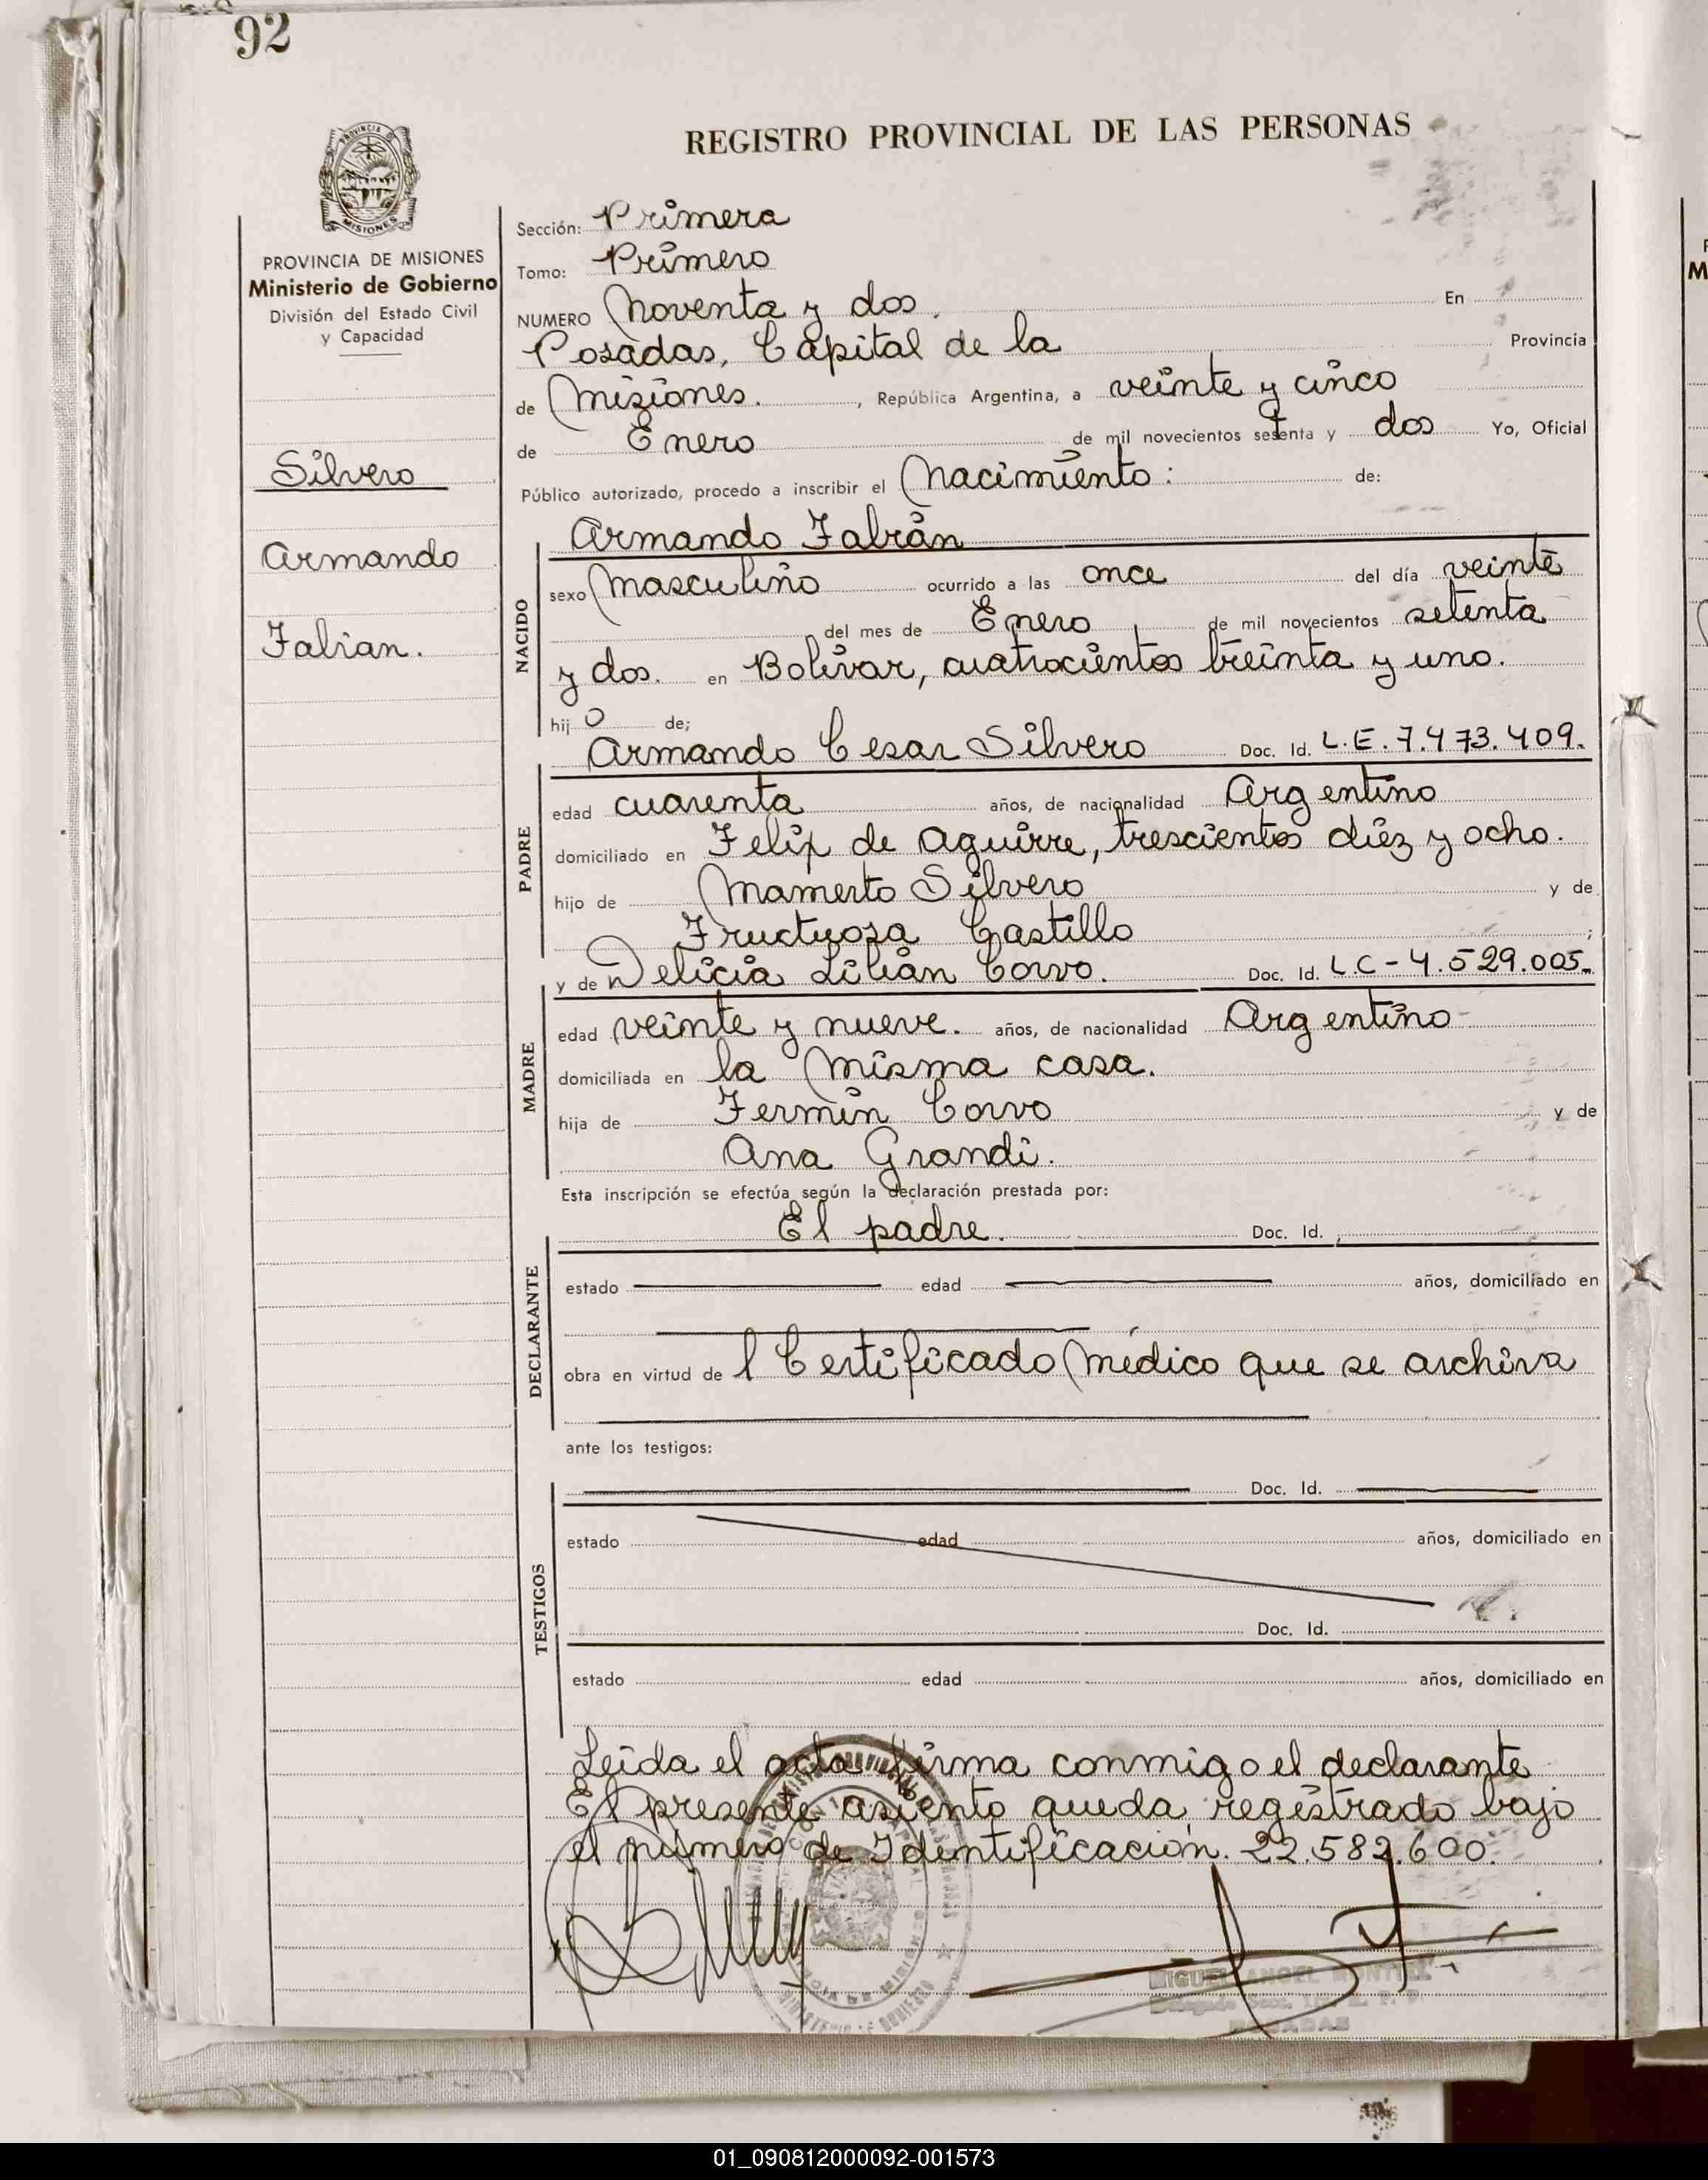 92
REGISTRO PROVINCIAL DE LAS PERSONAS
PROVINCIA DE MISIONES
Ministerio de Gobierno
División del Estado Civil
y Capacidad
Silvero
Armando
Fabian.
Sección: Primera
Tomo: Primero
NUMERO Noventa y dos. En
Posadas, Capital de la Provincia
de Misiones. , República Argentina, a veinte y cinco
de Enero de mil novecientos setenta y dos Yo, Oficial
Público autorizado, procedo a inscribir el Nacimiento: de:
NACIDO
Armando Fabián
sexo Masculino ocurrido a las once del día veinte
del mes de Enero de mil novecientos setenta
y dos. en Bolívar, cuatrocientos treinta y uno.
hij o de;
PADRE
Armando Cesar Silvero Doc. Id. L.E. 7.473.409.
edad cuarenta años, de nacionalidad Argentino
domiciliado en Felix de Aguirre, trescientos diez y ocho.
hijo de Mamerto Silvero y de
Fructuosa Castillo ;
MADRE
y de Delicia Lilián Corvo. Doc. Id. L.C - 4.529.005.
edad veinte y nueve. años, de nacionalidad Argentino
domiciliada en la misma casa.
hija de Fermín Corvo y de
Ana Grandi.
Esta inscripción se efectúa según la declaración prestada por:
DECLARANTE
El padre. Doc. Id.
estado edad años, domiciliado en
obra en virtud de l Certificado Médico que se archiva
ante los testigos:
TESTIGOS
Doc. Id.
estado edad años, domiciliado en
Doc. Id.
estado edad años, domiciliado en
Leida el acta firma conmigo el declarante
El presente asiento queda registrado bajo
el número de Identificación. 22.582.600.
MIGUEL ANGEL MONTIEL
POSADAS
01_090812000092-001573